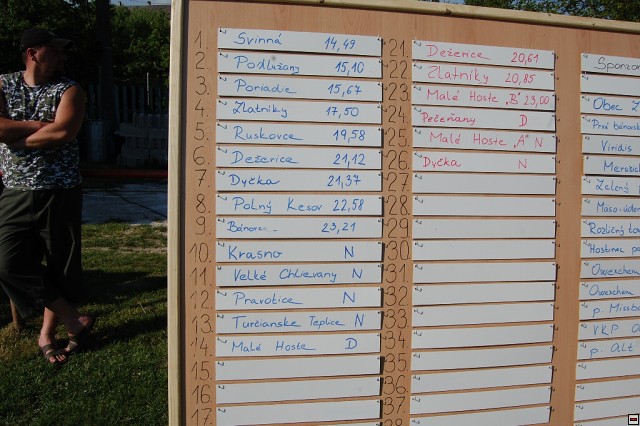 1. Svinná 14,49
2. Podlužany 15,10
3. Poriadie 15,67
4. Zlatníky 17,50
5. Ruskovce 19,58
6. Dežerice 21,12
7. Dyčka 21,37
8. Poľný Kesov 22,58
9. Bánovce 23,21
10. Krasno N
11. Veľké Chlievany N
12. Pravotice N
13. Turčianske Teplice N
14. Malé Hoste D
15.
16.
17.
21. Dežerice 20,61
22. Zlatníky 20,85
23. Malé Hoste "B" 23,00
24. Pečeňany D
25. Malé Hoste "A" N
26. Dyčka N
27.
28.
29.
30.
31.
32.
33.
34.
35.
36.
37.
38
Sponzor
Obec Z
Prvá bánov
Viridis
Zelený
Mäso-úden
Rozličný tov
Hostinec po
Owerschem
Owerschem
p. Missb
VKP
p. Alt